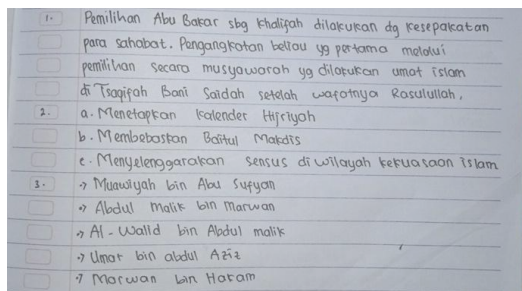 1. Pemilihan Abu Bakar sbg Khalifah dilakukan dg kesepakatan
para sahabat. Pengangkatan beliau yg pertama melalui
pemilihan secara musyawarah yg dilakukan umat islam
di Tsaqifah Bani Saidah setelah wafatnya Rasulullah.
2. a. Menetapkan kalender Hijriyah
b. Membebaskan Baitul Makdis
c. Menyelenggarakan sensus di wilayah kekuasaan islam
3. -> Muawiyah bin Abu Sufyan
-> Abdul malik bin marwan
-> Al-Walid bin Abdul malik
-> Umar bin abdul Aziz
-> Marwan bin Hakam